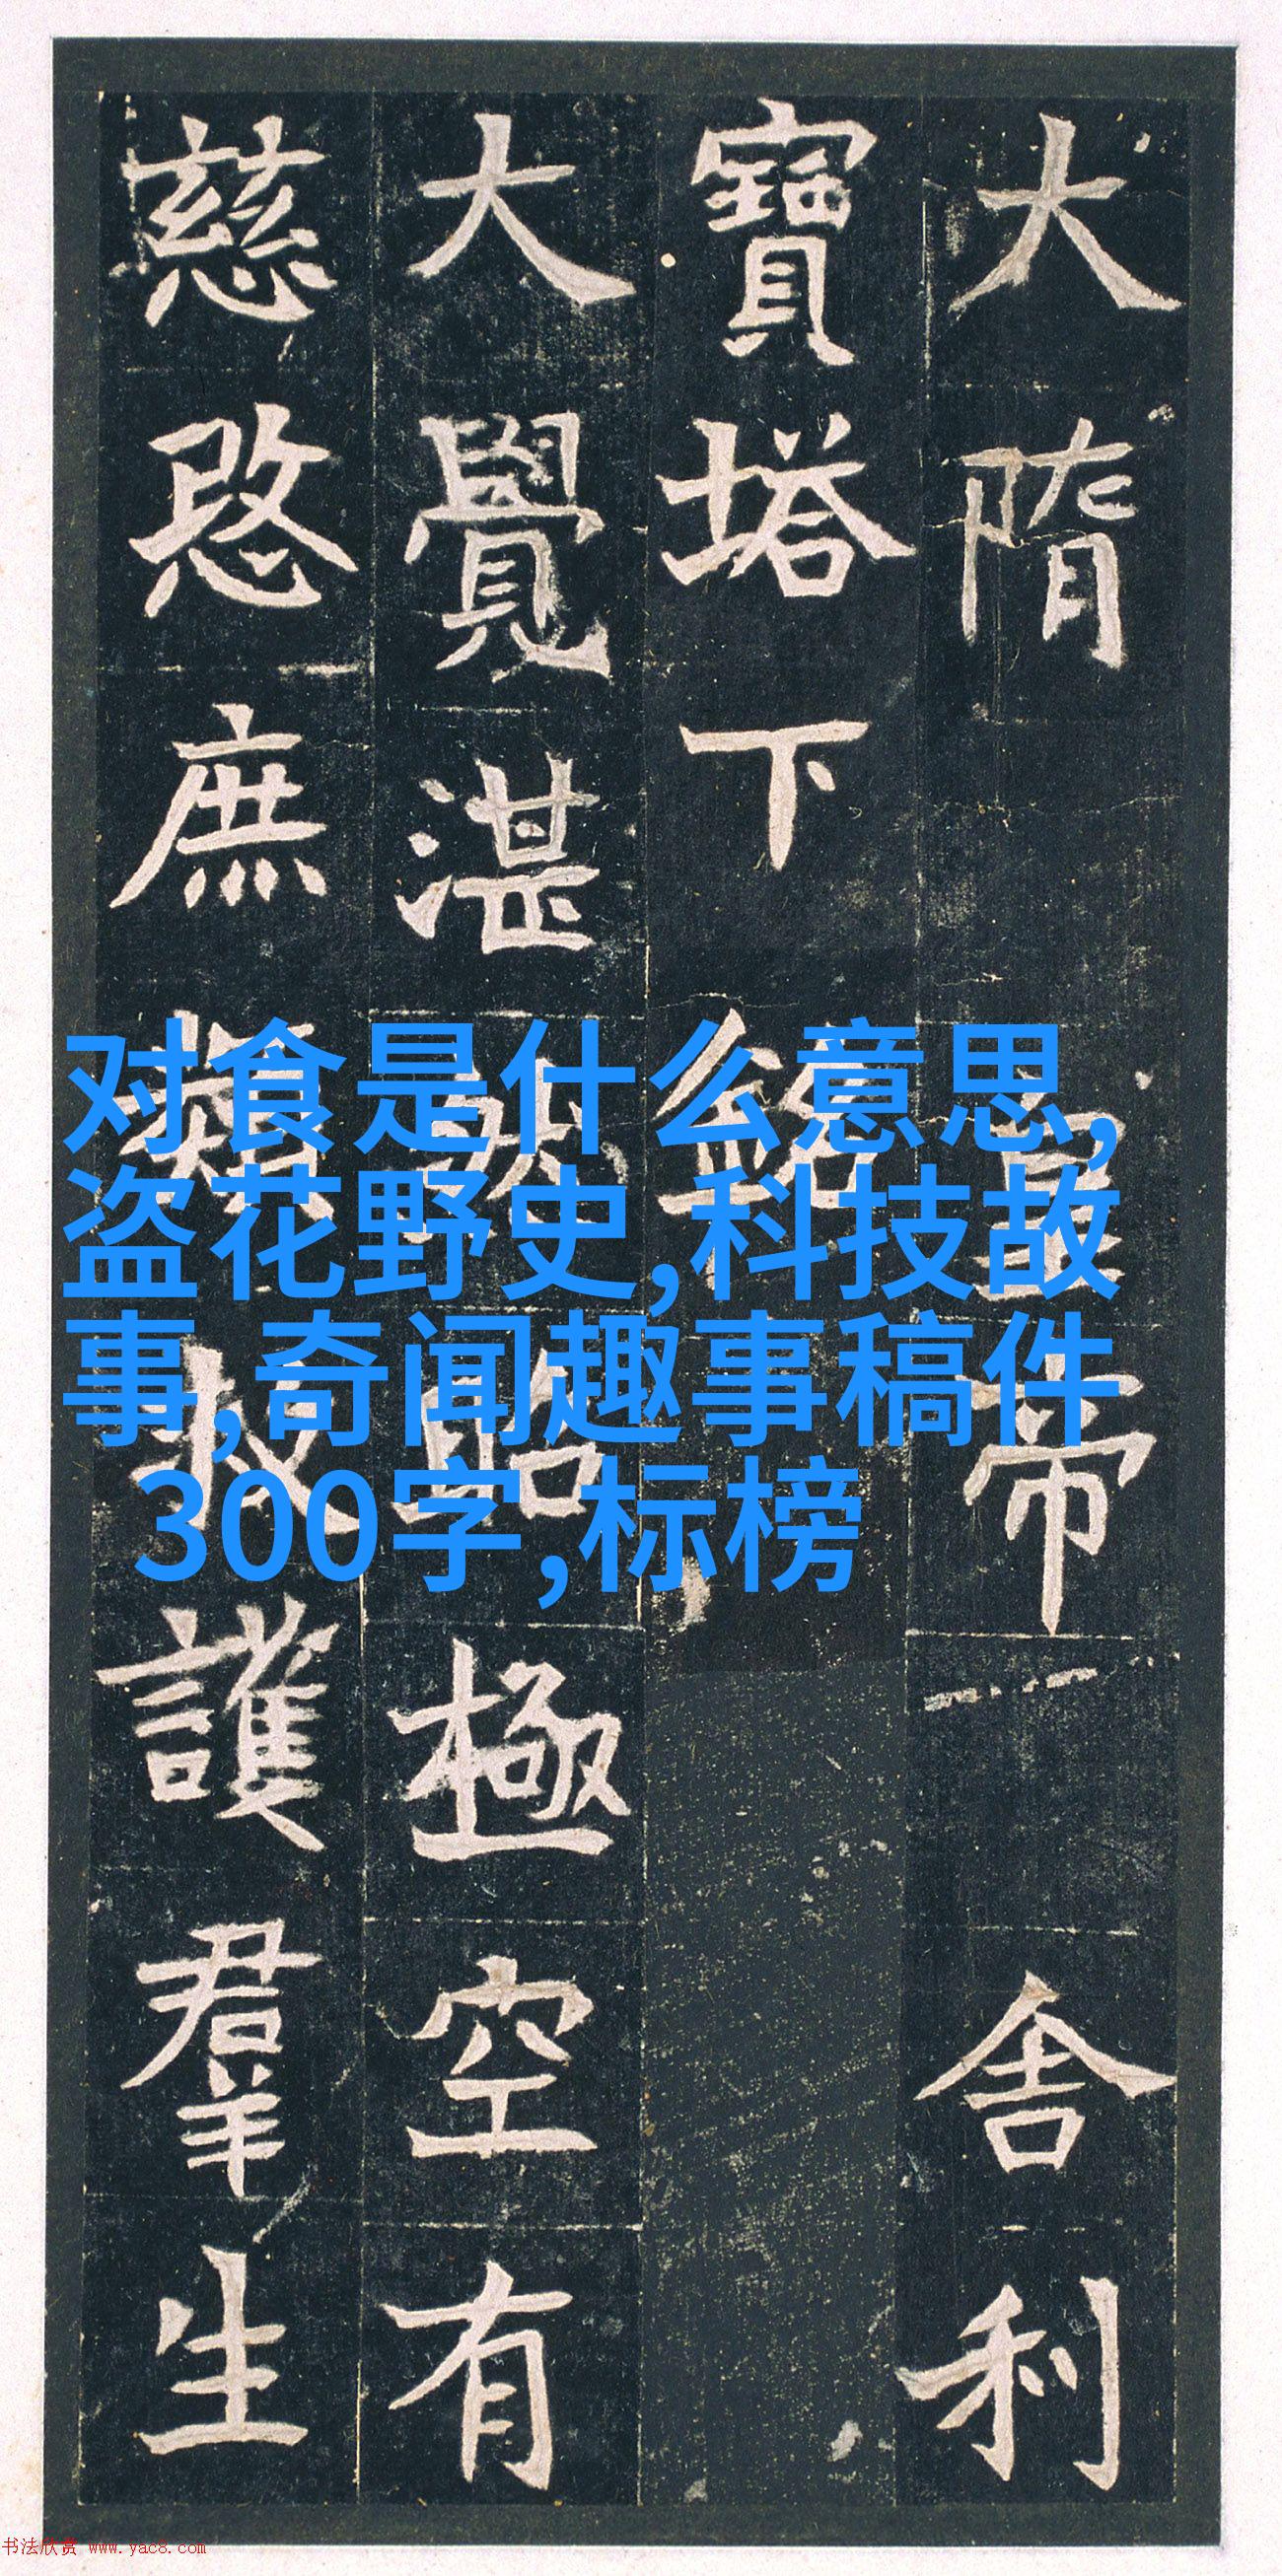 大隋皇帝舍利
寶塔下銘
大覺湛然昭極空有
慈愍庶類救護羣生
对食是什么意思,
盗花野史,科技故
事,奇闻趣事稿件
300字,标榜
书法欣赏 www.yac8.com